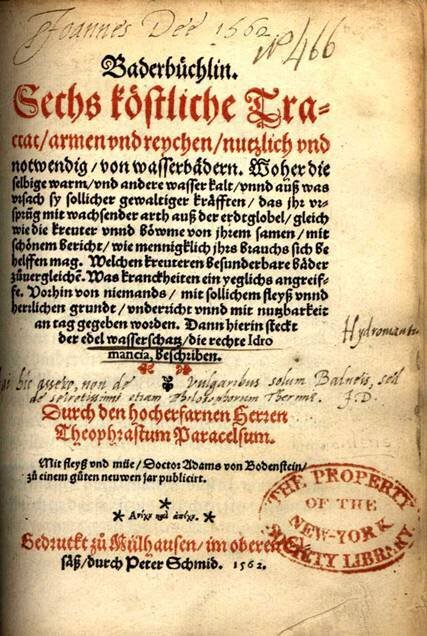 Joannes Dee 1562
No 466
Baderbüchlin.
Sechs köstliche Tra-
ctat/armen vnd reychen/nutzlich vnd
notwendig/von wasserbädern. Woher die
selbige warm/vnd andere wasser kalt/vnnd auß was
vrsach sy sollicher gewaltiger kräfften/das jhr vr-
sprüg mit wachsender arth auß der erdtglobel/gleich
wie die kreuter vnnd böwme von jhrem samen/mit
schönem bericht/wie mennigklich jhrs brauchs sich be
helffen mag. Welchen kreuteren besunderbare bäder
zůuergleichē. Was kranckheiten ein yeglichs angreif-
fe. Vorhin von niemands/mit sollichem fleyß vnnd
herrlichen grundt/vnderricht vnnd mit nutzbarkeit
an tag gegeben worden. Dann hierin steckt
der edel wasserschatz/die rechte Idro
mancia, beschriben.
Hydromanti
hic assero, non de vulgaribus solum Balneis, sed
de secretissimi etiam Philosophorum Thermis. J.D.
Durch den hocherfarnen Herren
Theophrastum Paracelsum.
Mit fleyß vnd müe/Doctor Adams von Bodenstein/
zů einem gůten neuwen jar publicirt.
* Ανέχȣ καὶ ἀπέχȣ. *
Gedruckt zů Mülhausen/im oberen El
säß/durch Peter Schmid. 1562.
THE PROPERTY
OF THE
NEW-YORK
SOCIETY LIBRARY.